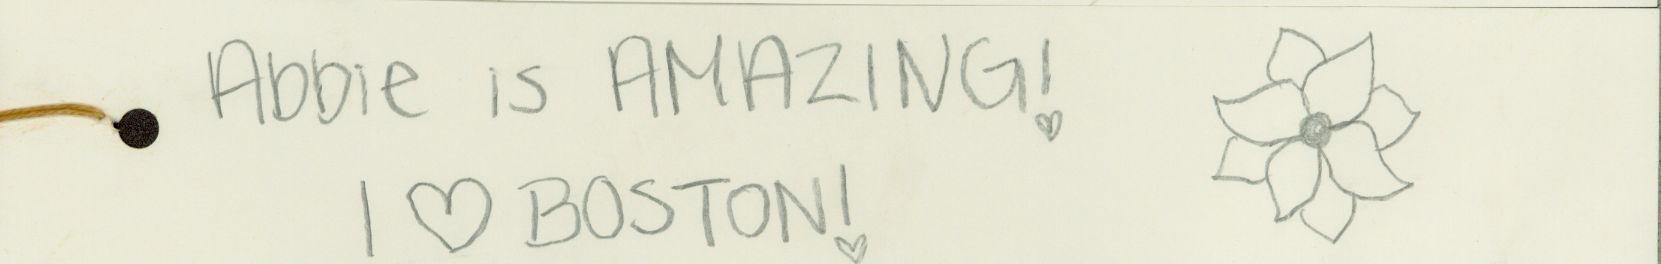 Abbie is AMAZING!
I ♡ BOSTON!